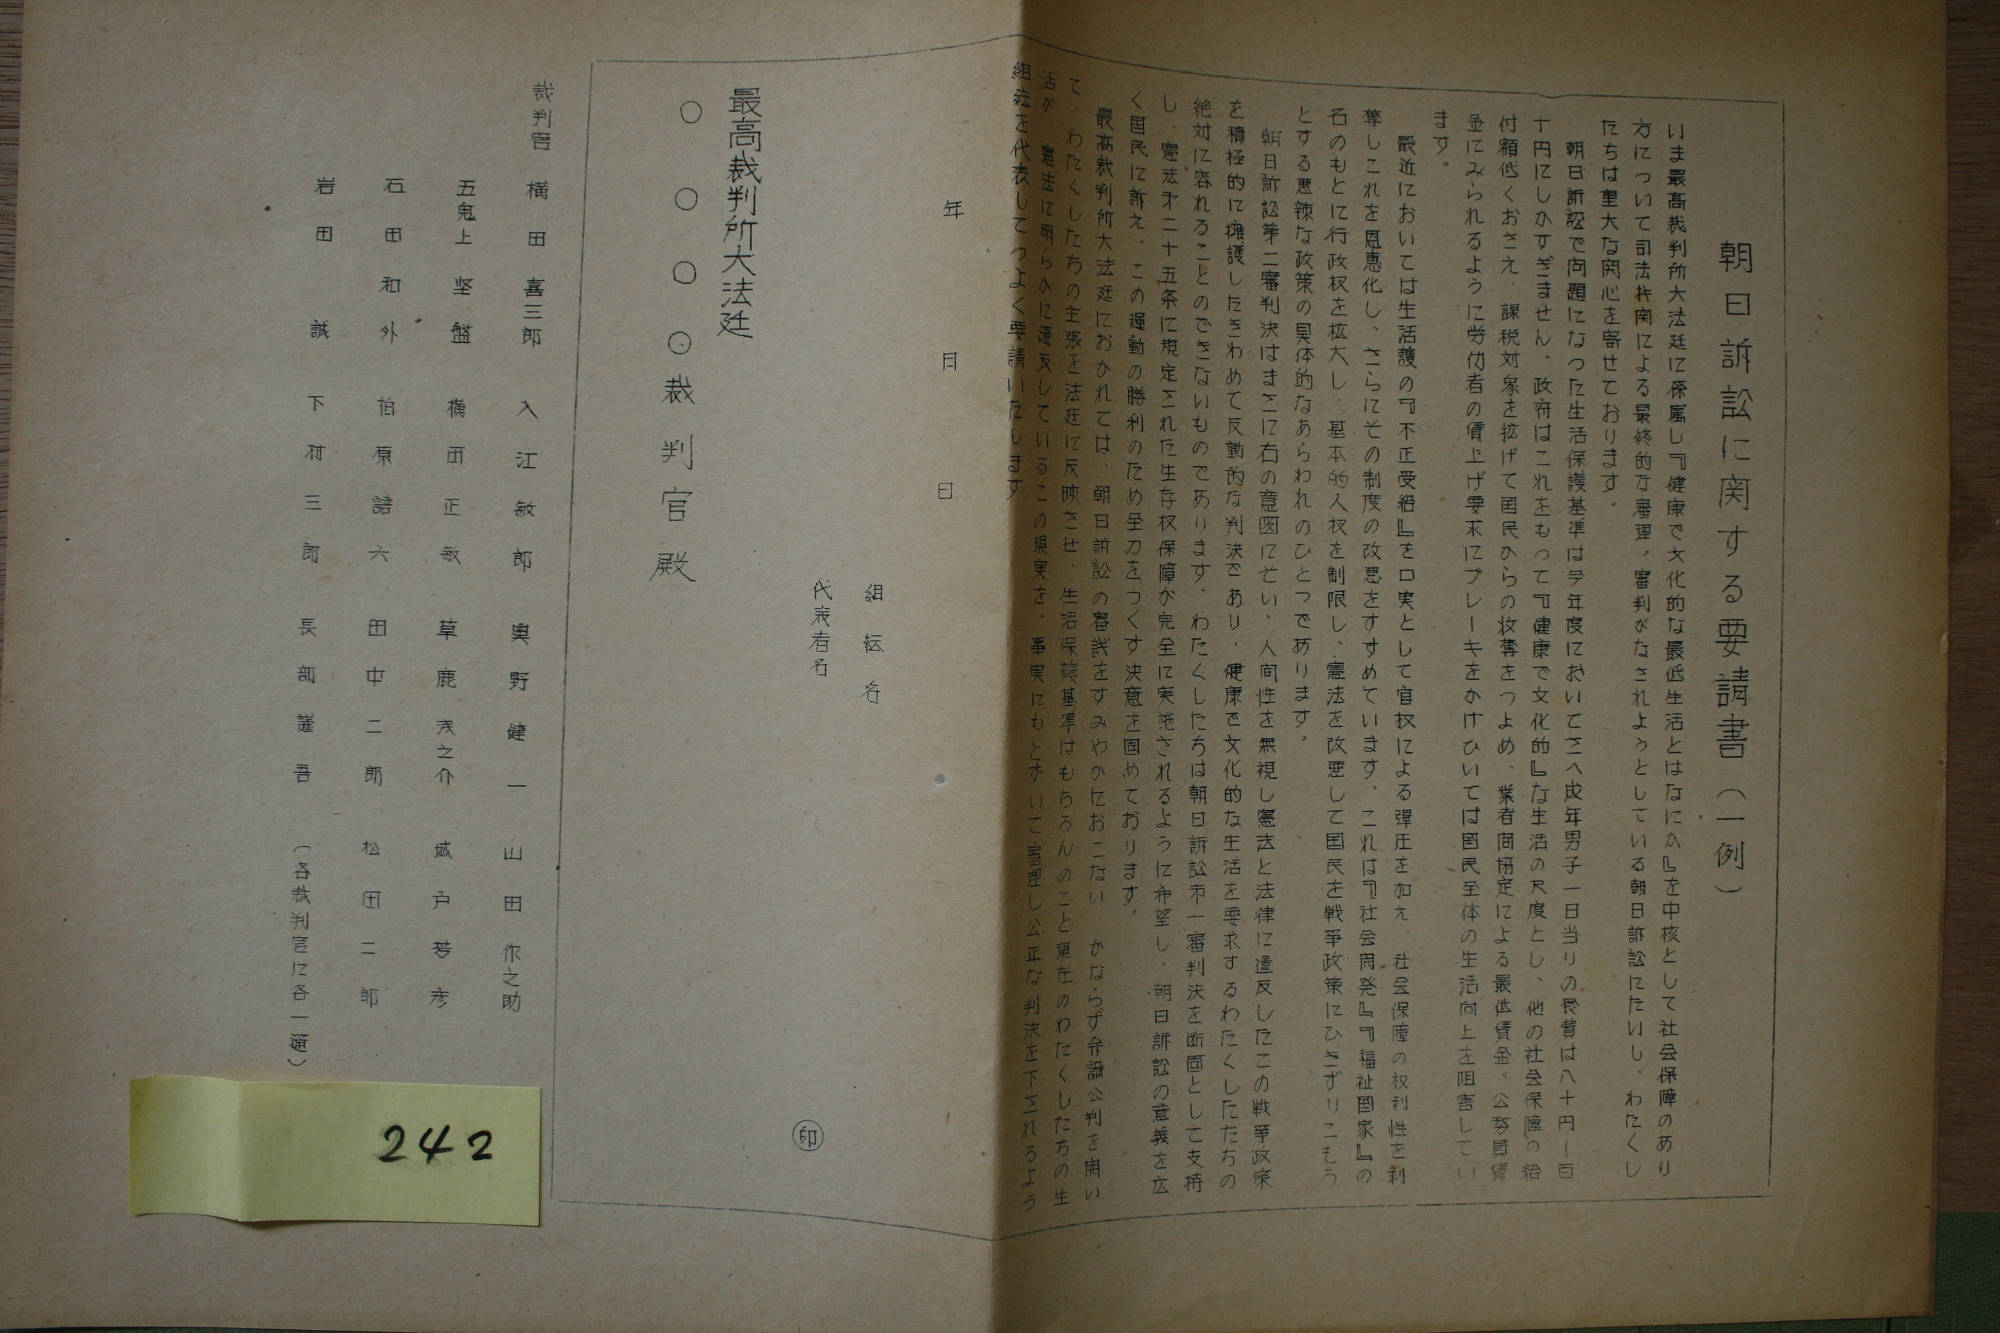 朝日訴訟に関する要請書(一例)
いま最高裁判所大法廷に係属し『健康で文化的な最低生活とはなにか』を中核として社会保障のあり
方について司法杵関による最終的な審理，審判がなされようとしている朝日訴訟にたいし、わたくし
たちは重大な関心を寄せております。
朝日訴訟で问題になつた生活保護基準は今年度においてさへ成年男子一日当りの食費は八十円〜百
十円にしかすぎません。政府はこれをもって『健康で文化的』な生活の尺度とし、他の社会保障の給
付額低くおさえ、課税対象を拡げて国民からの收奪をつよめ、業者间協定による最低賃金、公務員賃
金にみられるように労仂者の賃上げ要求にブレーキをかけひいては国民全体の生活向上を阻害してい
ます。
最近においては生活護の『不正受給』を口実として官权による弾圧を加え 社会保障の权利性を剥
奪しこれを恩恵化し、さらにその制度の改悪をすすめています。これは『社会開発』『福祉国家』の
名のもとに行政权を拡大し、基本的人权を制限し、憲法を改悪して国民を戦争政策にひきずりこもう
とする悪辣な政策の具体的なあらわれのひとつであります。
朝日訴訟第二審判決はまさに右の意図にそい、人间性を無視し憲法と法律に違反したこの戦争政策
を積極的に擁護したきわめて反動的な判決であり、健康で文化的な生活を要求するわたくしたたちの
絶対に容れることのできないものであります。わたくしたちは朝日訴訟才一審判決を断固として支持
し、憲法才二十五条に規定された生存权保障が完全に実施されるように希望し、朝日訴訟の意義を広
く国民に訴え、この運動の勝利のため全力をつくす決意を固めております。
最高裁判所大法廷におかれては、朝日訴訟の審議をすみやかにおこない、かならず弁論公判を開い
て、わたくしたちの主張を法廷に反映させ、生活保護基準はもちろんのこと現在のわたくしたちの生
活が、憲法に明らかに違反しているこの現実を、事実にもとずいて審理し公正な判決を下されるよう
組紜を代表してつよく要請いたします
年 月 日
組紜名
代表者名 印
最高裁判所大法廷
○○○○裁判官殿
裁判官 横田喜三郎 入江敏郎 奥野健一 山田作之助
五鬼上堅盤 横田正敏 草鹿浅之介 城戸芳彦
石田和外 柏原語六 田中二郎 松田二郎
岩田誠 下村三郎 長部謹吾 (各裁判官に各一通)
242